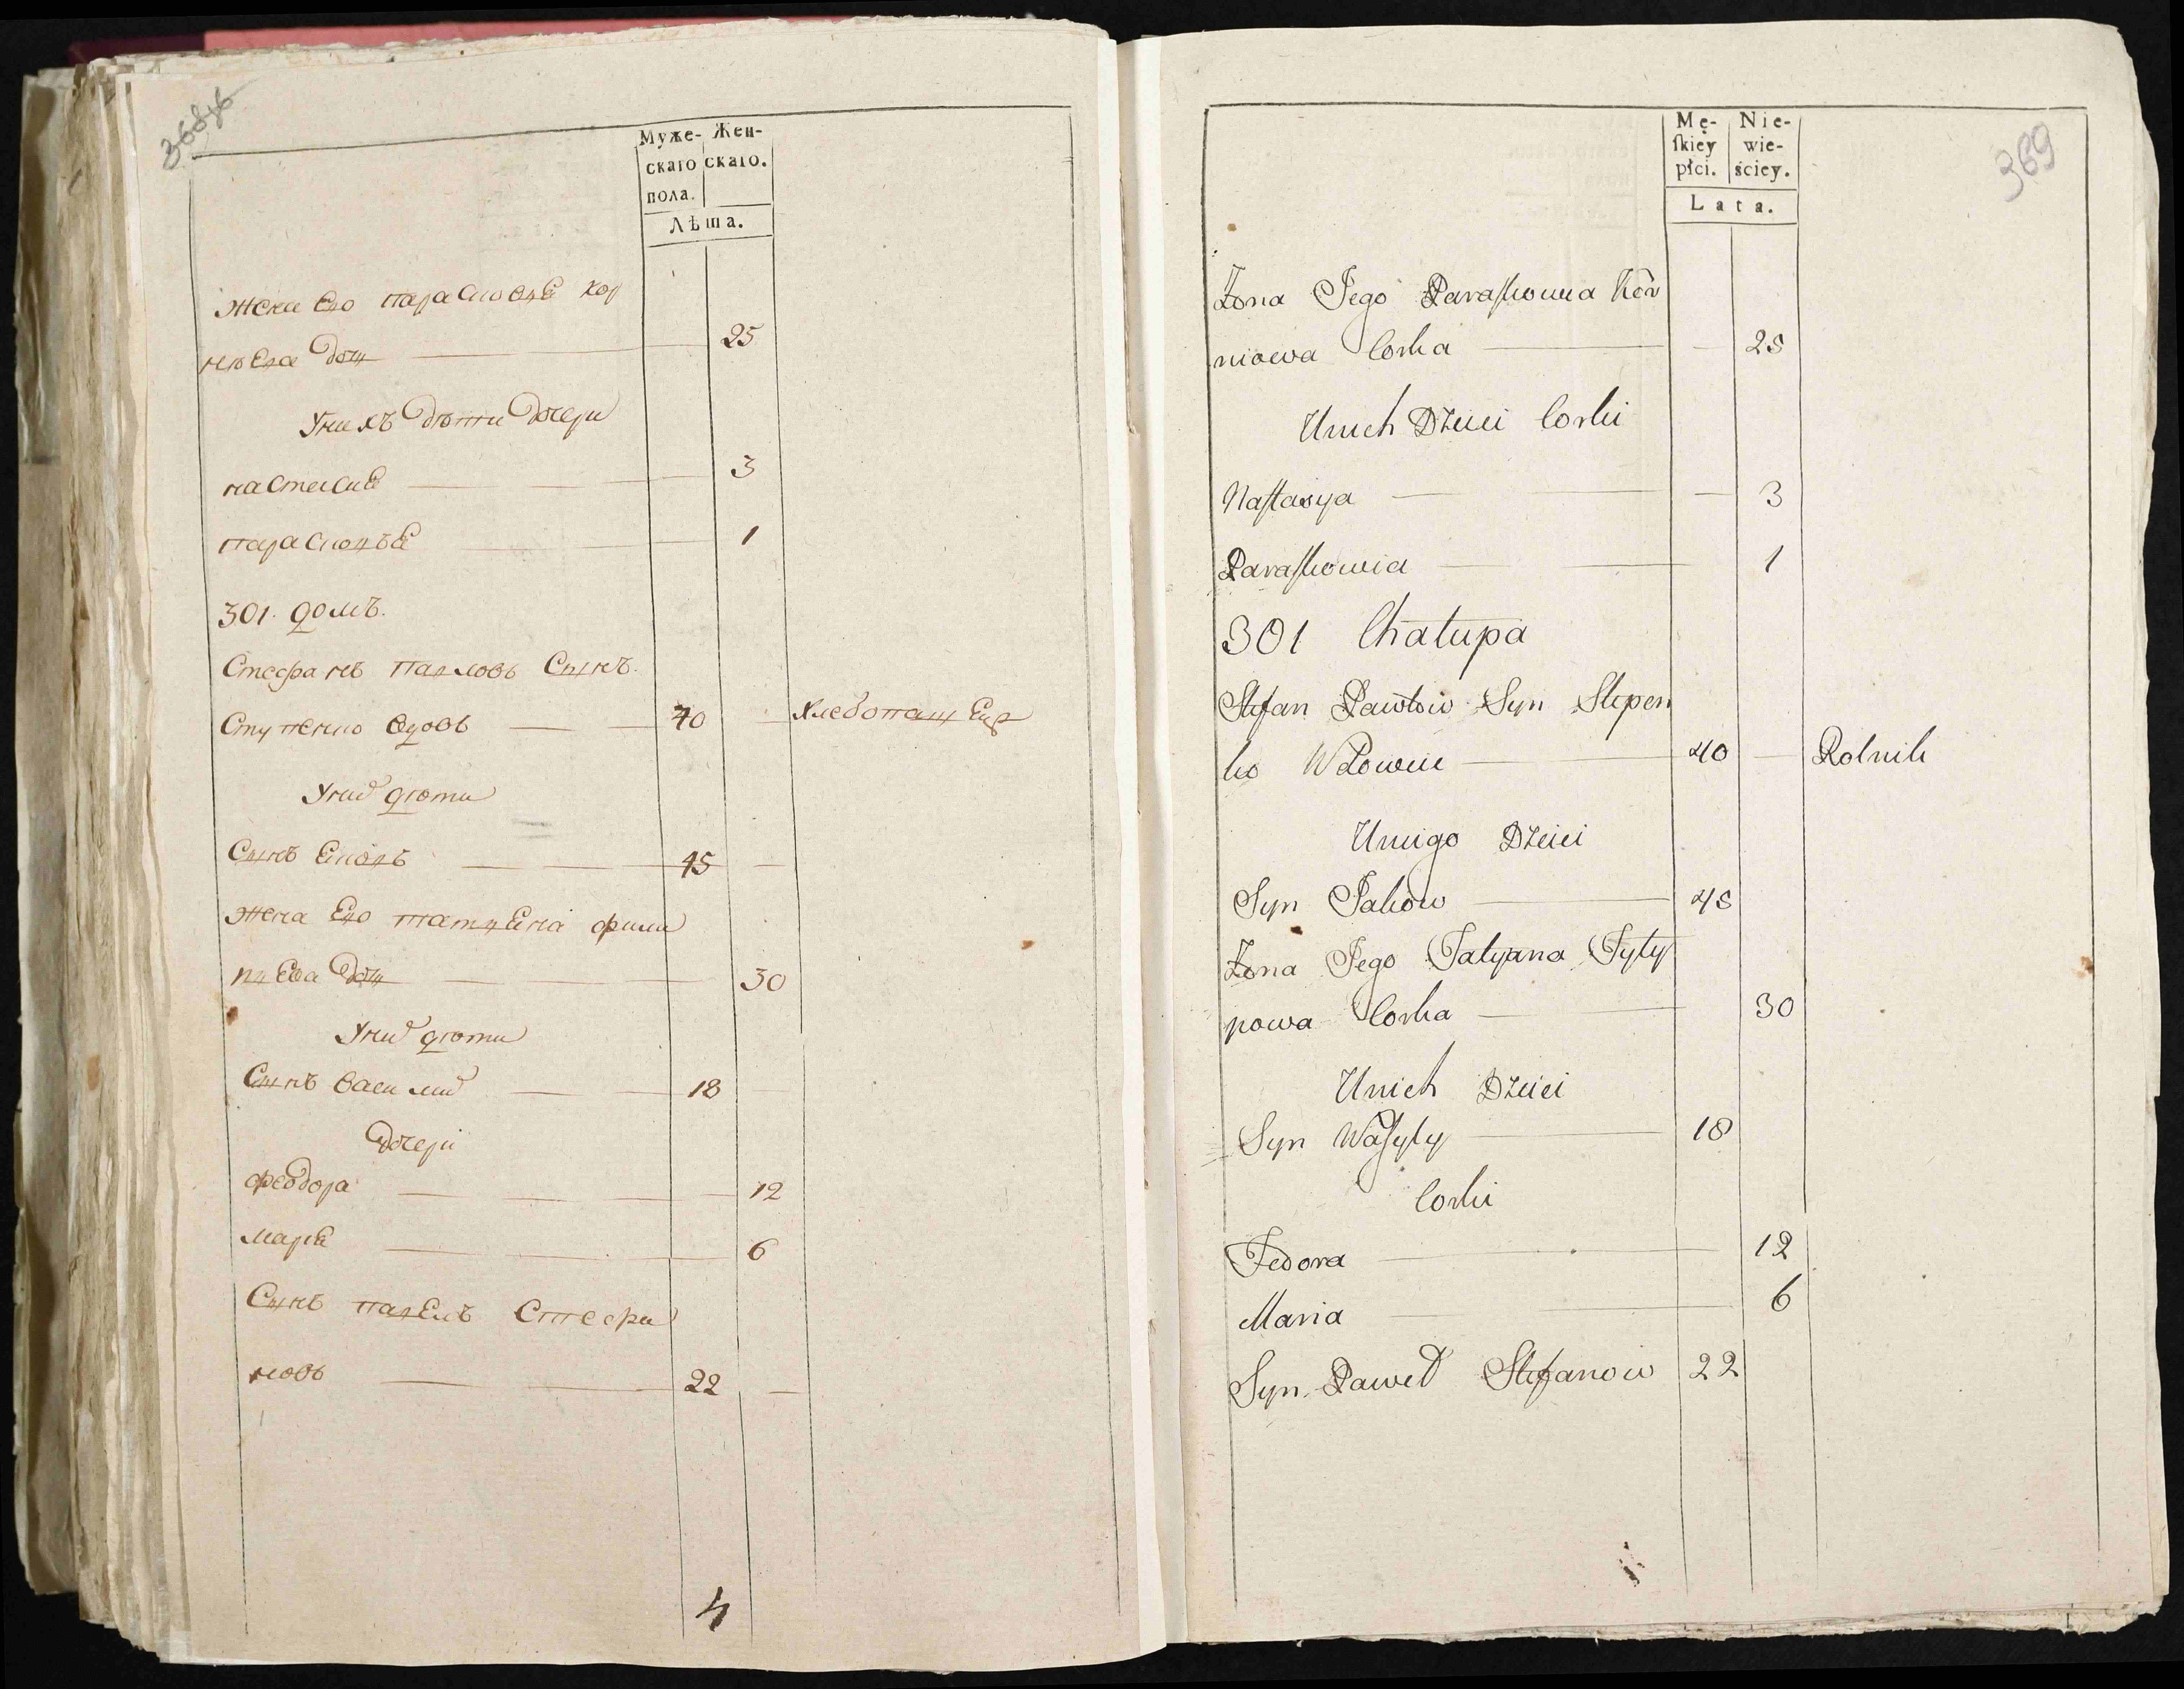 368об
Муже- Жен-
скаго скаго.
пола.
Лѣта.
жена Его парасковЪЯ Кор
нѣева дочь 25
Унихъ дѣти дочери
настасия 3
парасковъя 1
301. домъ.
Стефанъ павловъ Сынъ
Ступенко вдовъ 70 Хлебопашецъ
Унего дѣти
Сынъ Яковъ 45
жена Его татияна фили
пиева дочь 30
Уних дѣти
Сынъ василий 18
дочери
феодора 12
мария 6
Сынъ павелъ Стефа
новъ 22
4
369
Mę- Nie-
ſkiey wie-
płci. ściey.
Lata.
Żona Jego Paraſkowia Kor
niowa Corka 25
Unich Dzieci Corki
Naſtasya 3
Paraſkowia 1
301 Chałupa
Stefan Pawłow Syn Stepen
ko Wdowiec 40 Rolnik
Uniego Dzieci
Syn Jakow 45
Żona Jego Tatyana Fyly
powa Corka 30
Unich Dzieci
Syn Waſyly 18
Corki
Fedora 12
Maria 6
Syn Paweł Stefanow 22